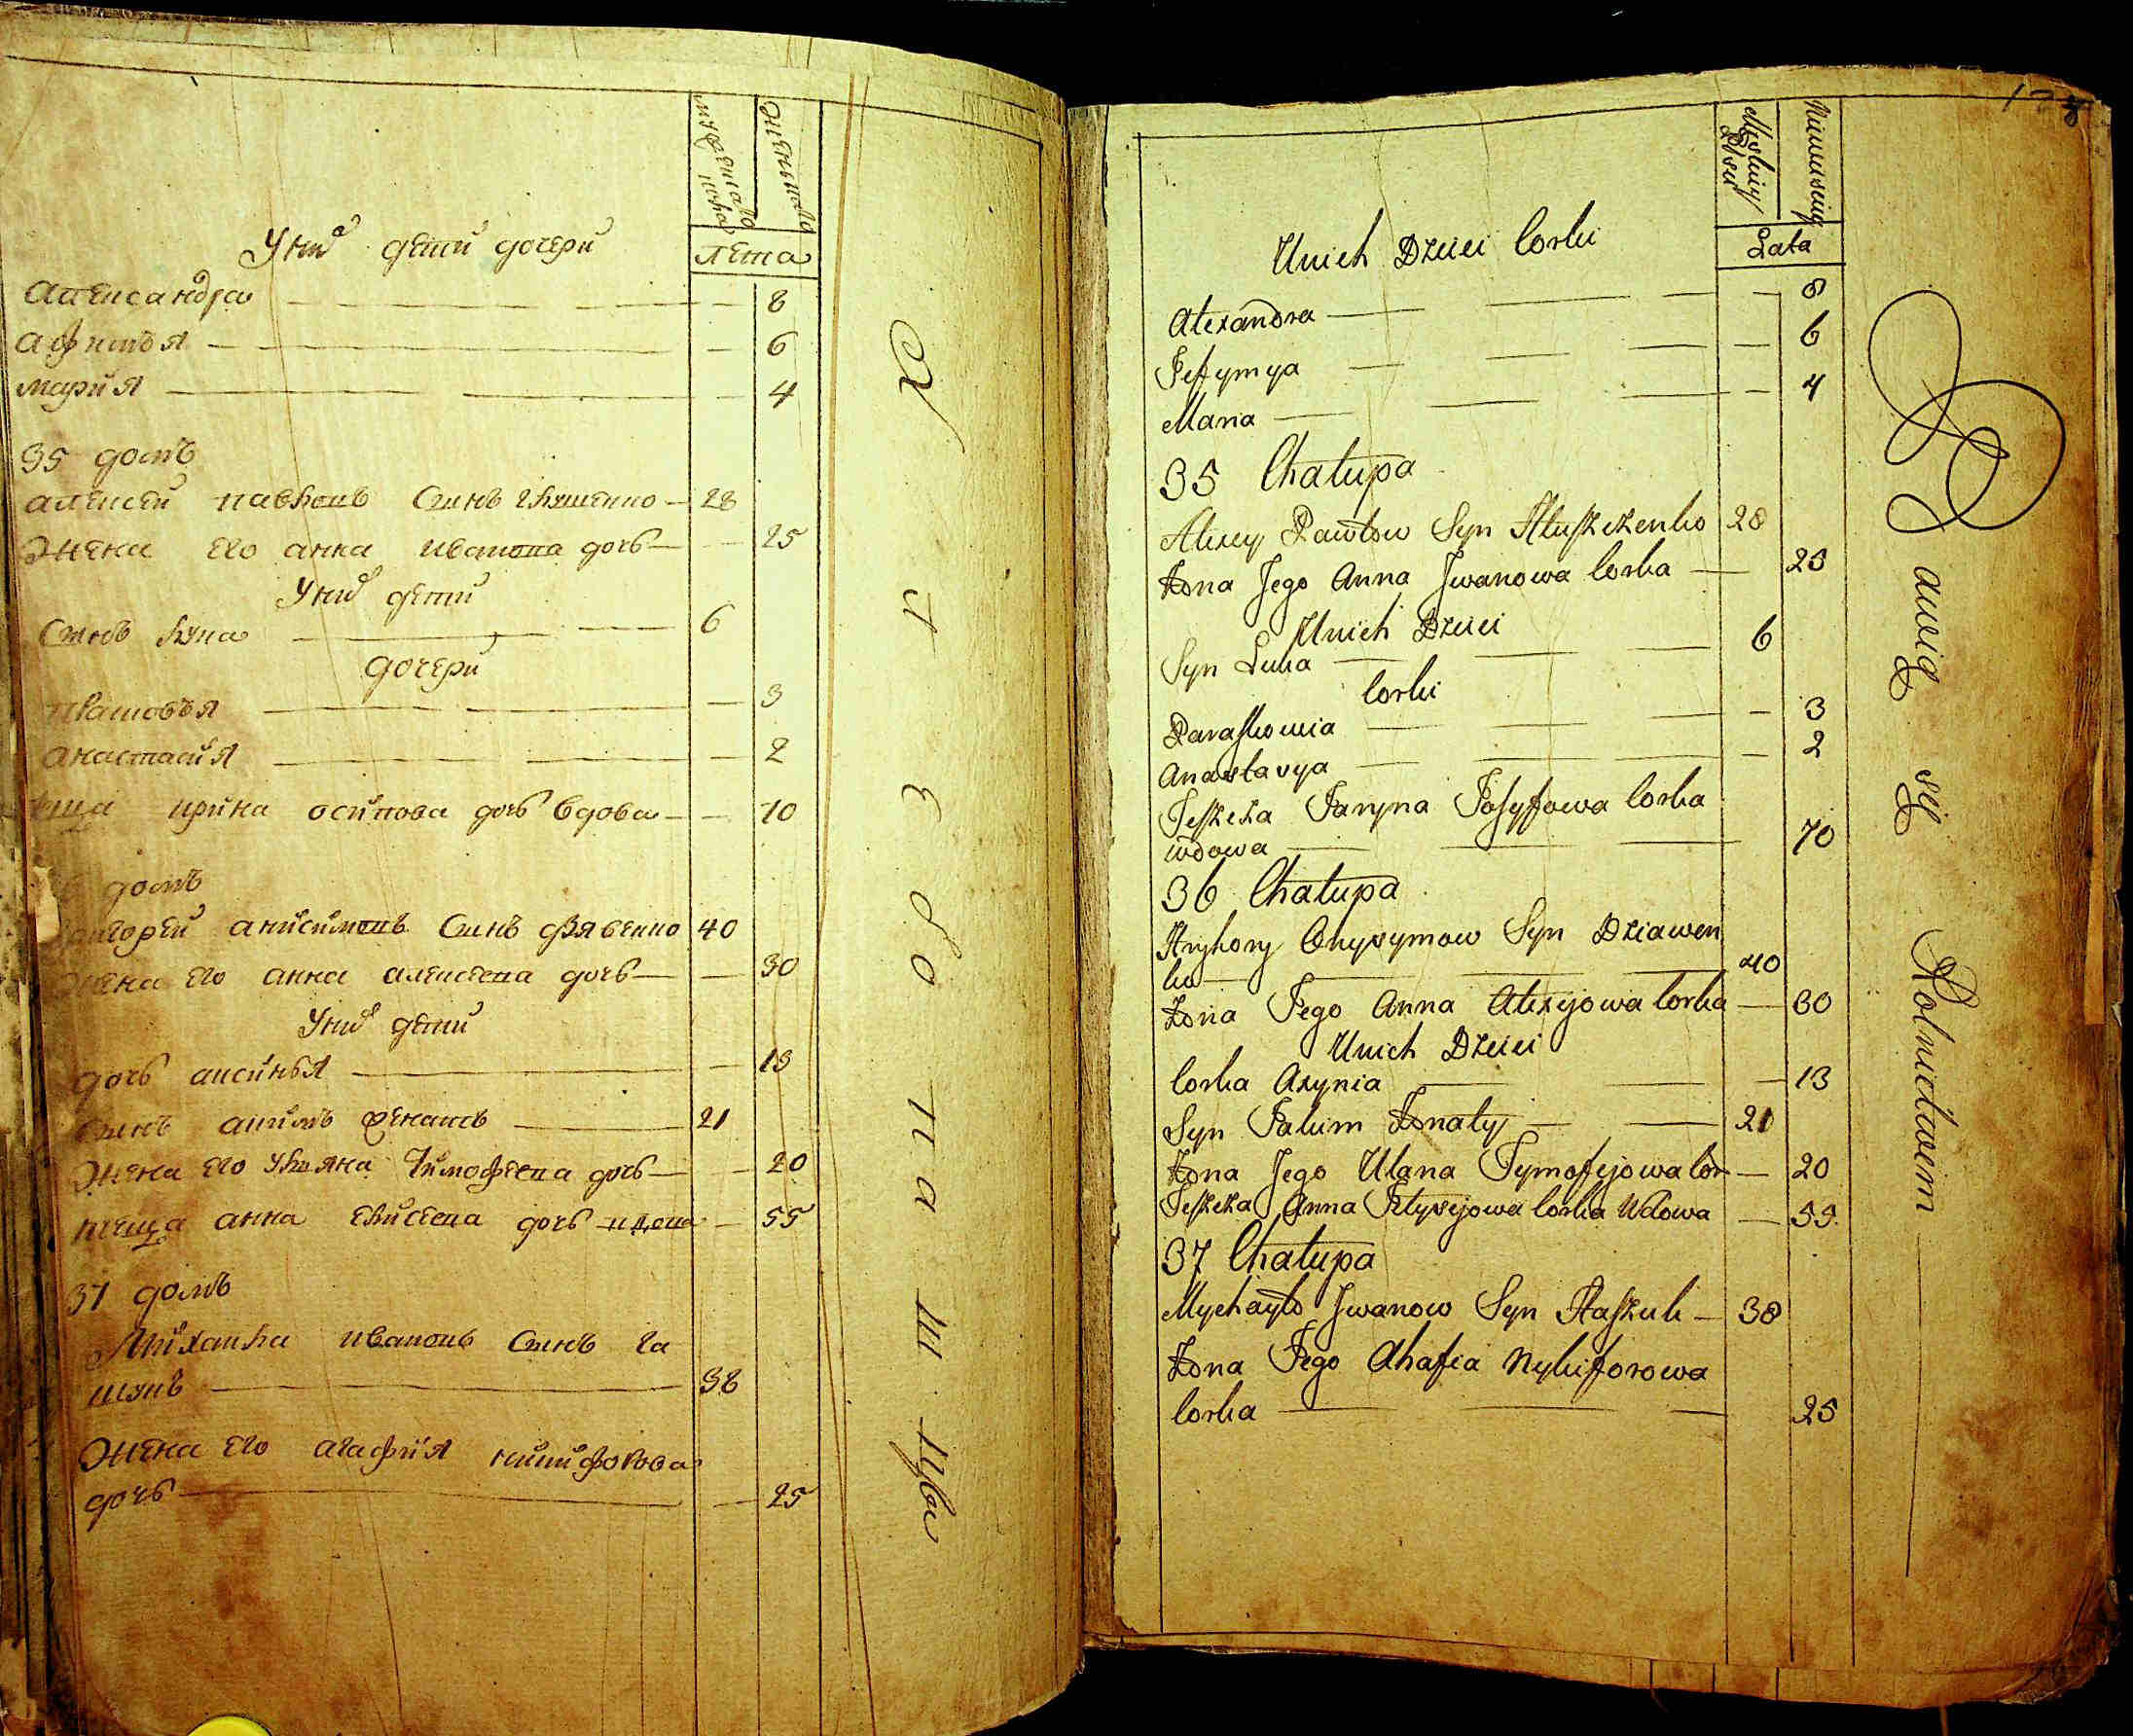 мужеска
пола
женска
лета
У них дети дочери
александра 8
афимья 6
мария 4
35 домъ
алексей павловъ сынъ глушенко 28
жена его анна иванова дочь 25
У них дети
сынъ лука 6
дочери
парасковья 3
анастасия 2
теща ирина осипова дочь вдова 70
домъ
григорей анисимовъ сынъ дзявенко 40
жена его анна алексеева дочь 30
У них дети
дочь аксинья 13
сынъ акимъ женатъ 21
жена его ульяна тимофеева дочь 20
теща анна елисеева дочь вдова 55
37 домъ
Михайла ивановъ сынъ га
шукъ 38
жена его агафия никифорова
дочь 25
Męskiej
Płci
Niewieściej
Lata
U nich Dzieci Corki
Alexandra 8
Jefymya 6
Maria 4
35 Chałupa
Alexey Pawłow Syn Hłuszczenko 28
Żona Jego Anna Jwanowa Corka 25
U nich Dzieci
Syn Łuka 6
Corki
Paraskowia 3
Anastasya 2
Teszcza Jaryna Josyfowa Corka
wdowa 70
36 Chałupa
Hryhory Onysymow Syn Dziawen
ko 40
Żona Jego Anna Alexijowa Corka 30
U nich Dzieci
Corka Axynia 13
Syn Jakim Żonaty 21
Żona Jego Ulana Tymofejowa Cor 20
Teszcza Anna Jelysejowa Corka Wdowa 55
37 Chałupa
Mychayło Jwanow Syn Haszuk 38
Żona Jego Ahafia Nykiforowa
Corka 25
Bawią się Rolnictwem